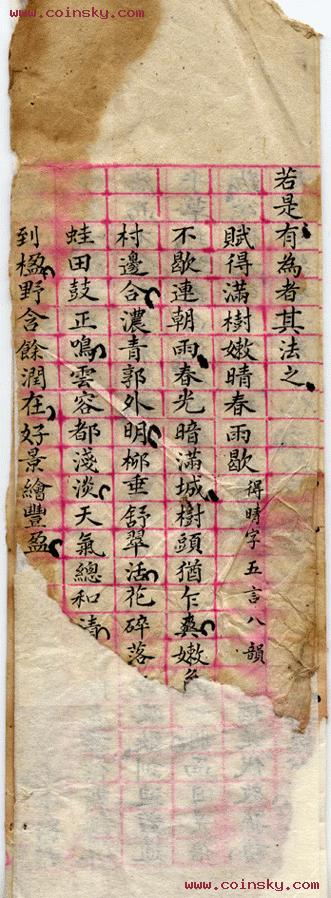 www.coinsky.com www.coinsky.com
若是有為者其法之
賦得滿樹嫩晴春雨歇 得晴字五言八韻
不歇連朝雨春光暗滿城樹頭猶乍爽嫩
村邊合濃青郭外明柳垂舒翠活花碎落
蛙田鼓正鳴雲容都淺淡天氣總和清
到楹野含餘潤在好景繪豐盈
www.coinsky.com